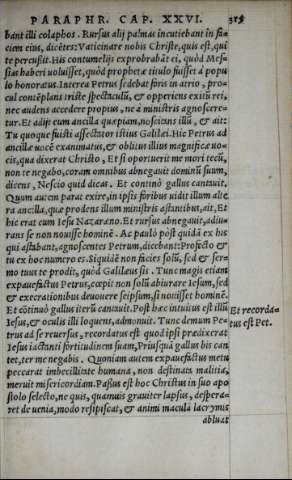 PARAPHR. CAP. XXVI. 315
bant illi colaphos. Rursus alij palmas incutiebant in fa=
ciem eius, dicẽtes: Vaticinare nobis Christe, quis est, qui
te percussit. His contumelijs exprobrabãt ei, quòd Mes=
sias haberi uoluisset, quòd prophetæ titulo fuisset à popu
lo honoratus. Interea Petrus sedebat foris in atrio, pro=
cul contẽplans triste spectaculũ, & opperiens exitũ rei,
nec audens accedere propius, ne à ministris agnoscere=
tur. Et adijt eum ancilla quæpiam, noscitans illũ, & ait:
Tu quoque fuisti assectator istius Galilei. Hic Petrus ad
ancillæ uocẽ exanimatus, & oblitus illius magnificæ uo=
cis, qua dixerat Christo, Et si oportuerit me mori tecũ,
non te negabo, coram omnibus abnegauit dominũ suum,
dicens, Nescio quid dicas. Et continò gallus cantauit.
Quum autem parat exire, in ipsis foribus uidit illum alte
ra ancilla, quæ prodens illum ministris astantibus, ait, Et
hic erat cum Iesu Nazareno. Et rursus abnegauit, adiu=
rans se non nouisse hominẽ. Ac paulò pòst quidã ex his
qui astabant, agnoscentes Petrum, dicebant: Profectò &
tu ex hoc numero es. Siquidẽ non facies solũ, sed & ser=
mo tuus te prodit, quòd Galileus sis. Tunc magis etiam
expauefactus Petrus, cœpit non solũ abiurare Iesum, sed
& execrationibus deuouere seipsum, si nouisset hominẽ.
Et cõtinuò gallus iterũ cantauit. Post hæc intuitus est illũ
Et recorda=
Iesus, & oculis illi loquens, admonuit. Tunc demum Pe=
tus est Pet.
trus ad se reuersus, recordatus est quod ipsi prædixerat
Iesus iactanti fortitudinem suam, Priusquã gallus bis can
tet, ter me negabis. Quoniam autem expauefactus metu
peccarat imbecillitate humana, non destinata malitia,
meruit misericordiam. Passus est hoc Christus in suo apo
stolo selecto, ne quis, quamuis grauiter lapsus, despera=
ret de uenia, modo resipiscat, & animi maculã lacrymis
abluat